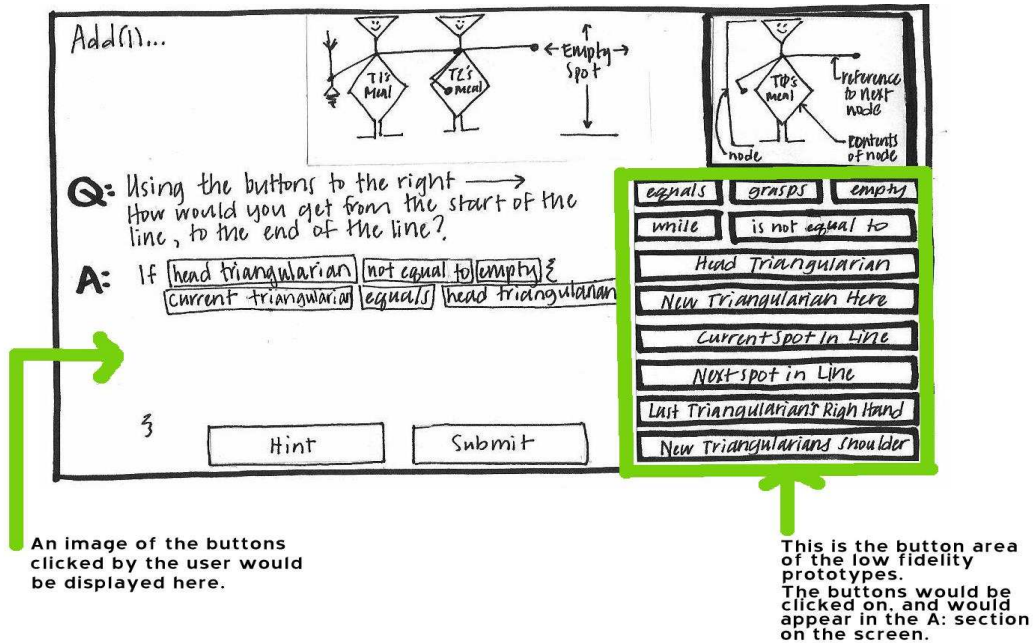 Add()...
T1's
Meal
T2's
Meal
Empty
Spot
T0's
Meal
reference
to next
node
contents
of node
node
Q: Using the buttons to the right
How would you get from the start of the
line, to the end of the line?
A: If head triangularian not equal to empty {
current triangularian equals head triangularian
}
Hint
Submit
equals grasps empty
while is not equal to
Head Triangularian
New Triangularian Here
Current Spot In Line
Next spot in Line
Last Triangularian's Righ Hand
New Triangularians Shoulder
An image of the buttons
clicked by the user would
be displayed here.
This is the button area
of the low fidelity
prototypes.
The buttons would be
clicked on, and would
appear in the A: section
on the screen.